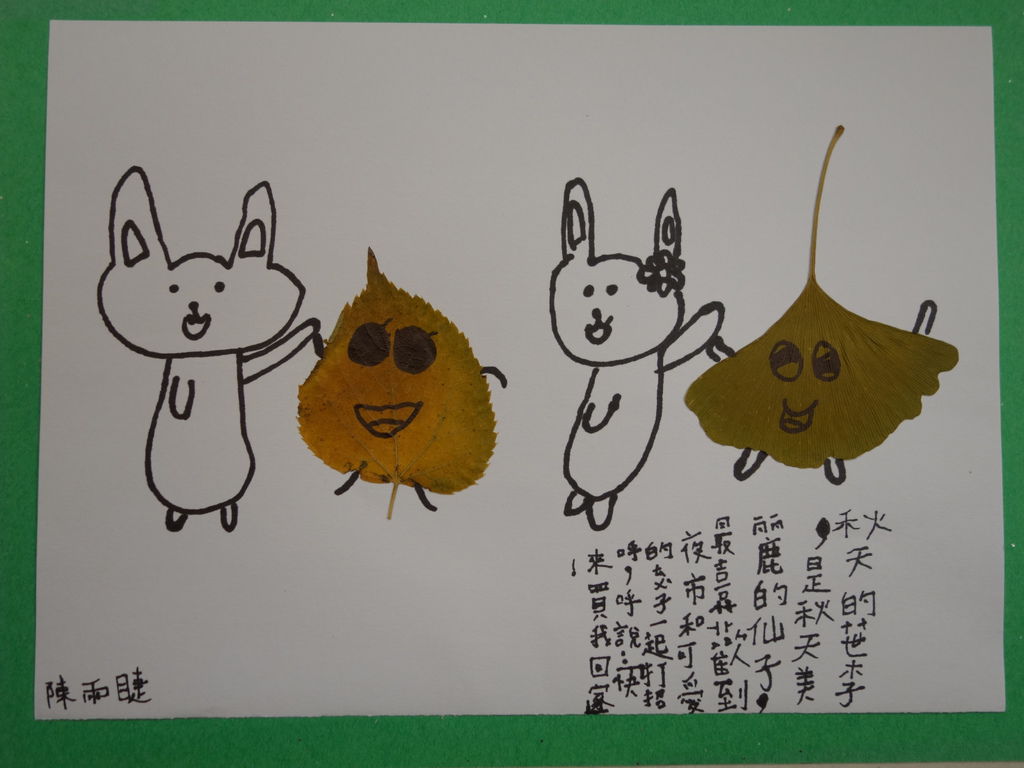 秋天的葉子
,是秋天美
麗的仙子,
最喜歡到
夜市和可愛
的兔子一起打招
呼,呼說:快
來買我回家
!
陳雨睫